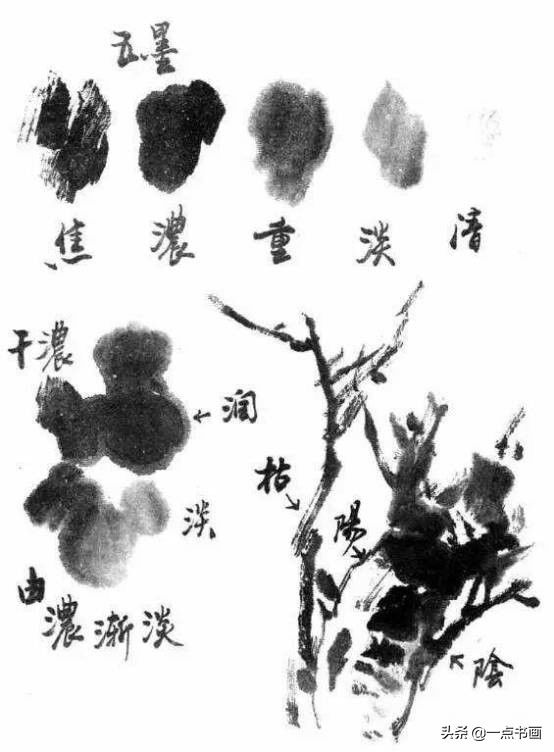 五墨
焦 濃 重 淡 清
干濃
润
枯
陽
淡
由濃渐淡
陰
头条 @一点书画